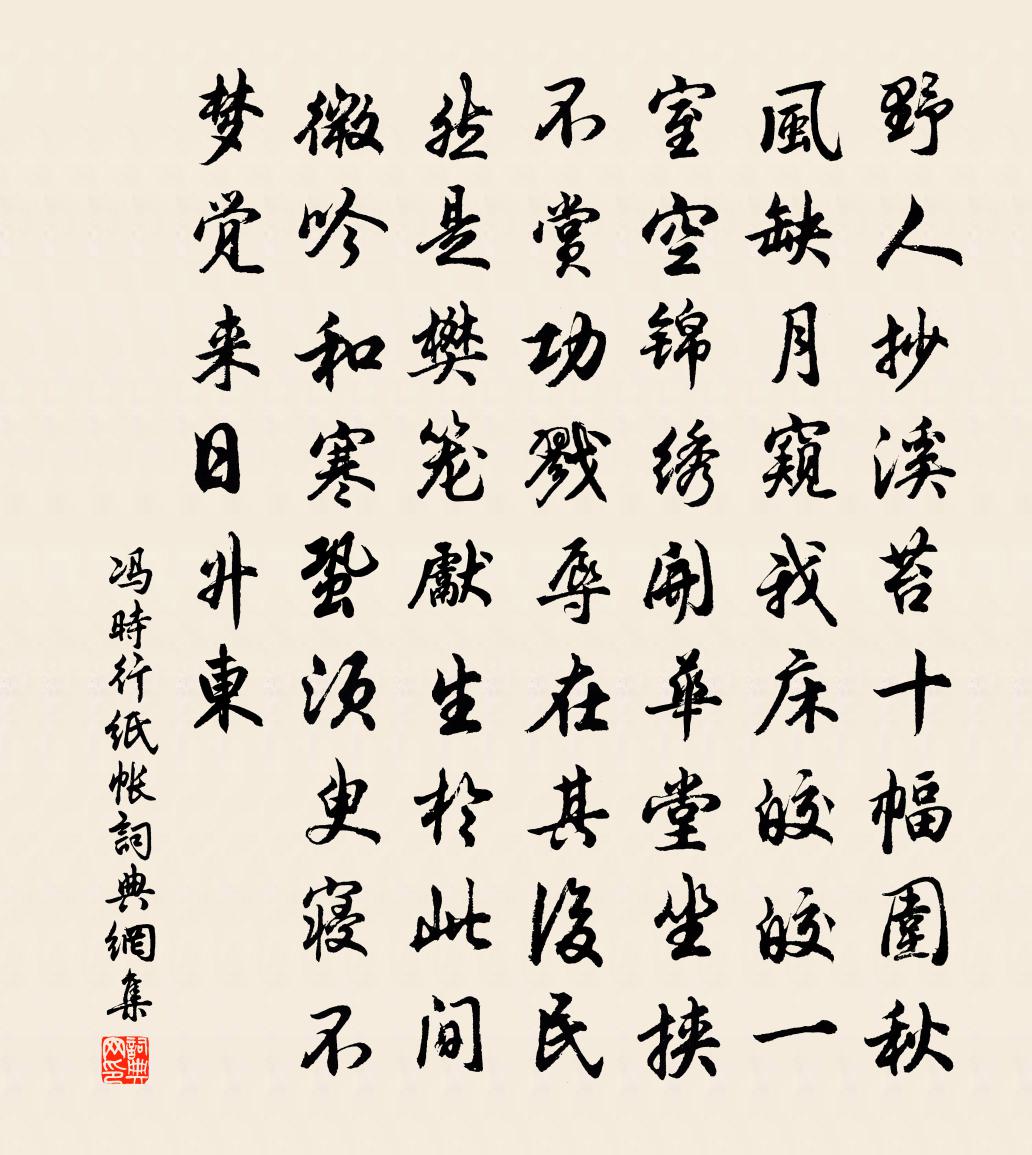 野人抄溪苔十幅圍秋
風缺月窺我床皎皎一
室空锦绣開華堂坐挾
不賞功戮辱在其後民
然是樊笼獻生於此间
微吟和寒蛩须臾寝不
梦觉来日升東
冯時行纸帐詞典網集
詞典网印